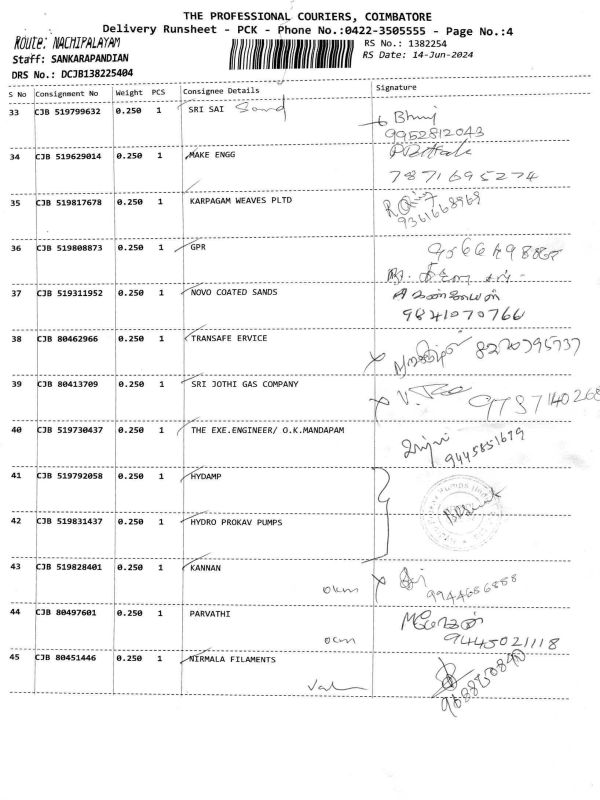 THE PROFESSIONAL COURIERS, COIMBATORE
Delivery Runsheet - PCK - Phone No.:0422-3505555 - Page No.:4
Route: NACHIPALAYAM
RS No.: 1382254
Staff: SANKARAPANDIAN
RS Date: 14-Jun-2024
DRS No.: DCJB138225404
S No Consignment No Weight PCS Consignee Details Signature
33 CJB 519799632 0.250 1 SRI SAI Sand
9952812043
34 CJB 519629014 0.250 1 MAKE ENGG
7871695274
35 CJB 519817678 0.250 1 KARPAGAM WEAVES PLTD
9361668969
36 CJB 519808873 0.250 1 GPR
37 CJB 519311952 0.250 1 NOVO COATED SANDS
9841070766
38 CJB 80462966 0.250 1 TRANSAFE ERVICE
8220795737
39 CJB 80413709 0.250 1 SRI JOTHI GAS COMPANY
V.
9787140268
40 CJB 519730437 0.250 1 THE EXE.ENGINEER/ O.K.MANDAPAM
9445851679
41 CJB 519792058 0.250 1 HYDAMP
42 CJB 519831437 0.250 1 HYDRO PROKAV PUMPS
43 CJB 519828401 0.250 1 KANNAN
okm
9944686888
44 CJB 80497601 0.250 1 PARVATHI
ocm 9445021118
45 CJB 80451446 0.250 1 NIRMALA FILAMENTS